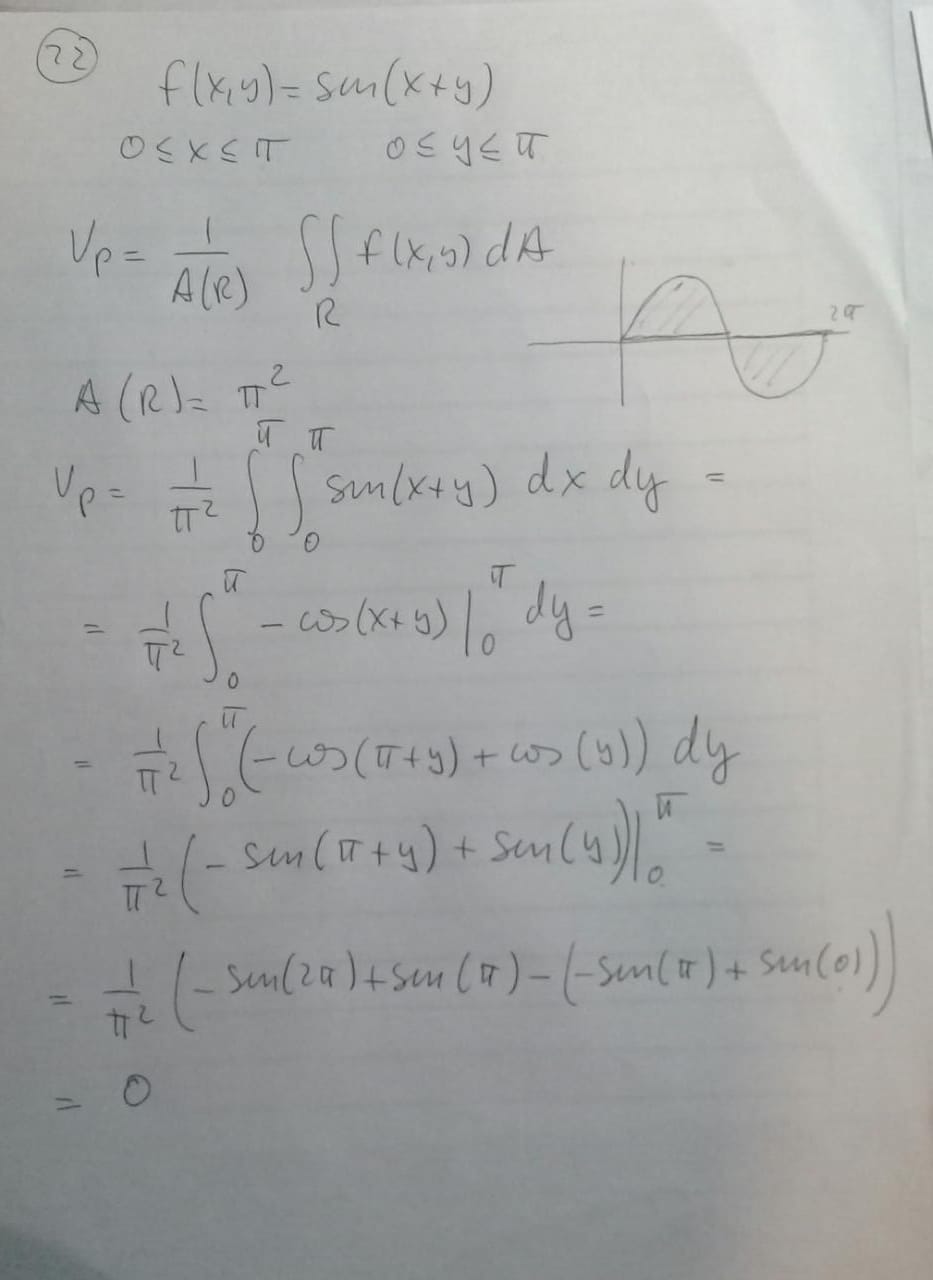 22
f(x,y) = sen(x+y)
0 ≤ x ≤ π 0 ≤ y ≤ π
Vp = 1/A(R) ∬_R f(x,y) dA
2π
A(R) = π²
Vp = 1/π² ∫₀^π ∫₀^π sen(x+y) dx dy =
= 1/π² ∫₀^π - cos(x+y) |₀^π dy =
= 1/π² ∫₀^π (- cos(π+y) + cos(y)) dy
= 1/π² (- sen(π+y) + sen(y)) |₀^π =
= 1/π² (- sen(2π) + sen(π) - (- sen(π) + sen(0)))
= 0